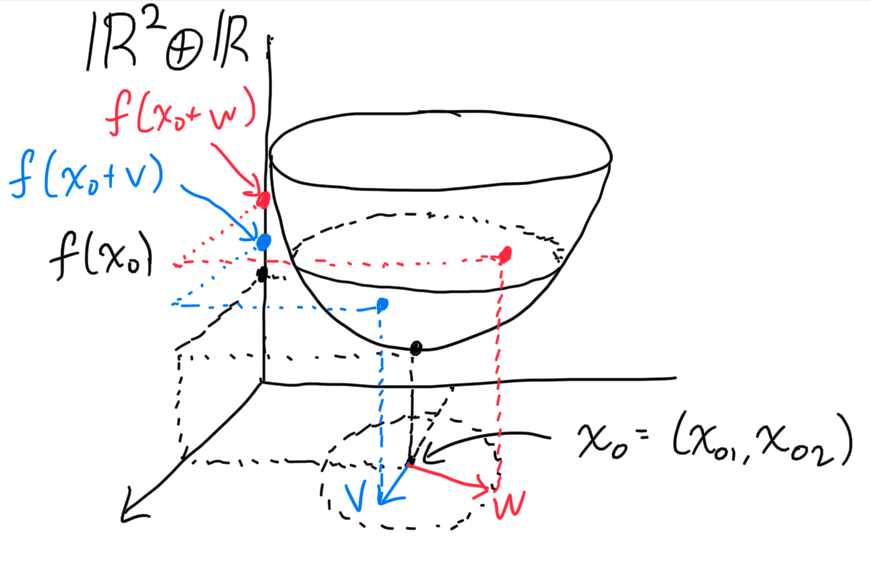 ℝ²⊕ℝ
f(x₀+w)
f(x₀+v)
f(x₀)
x₀ = (x₀₁, x₀₂)
v
w